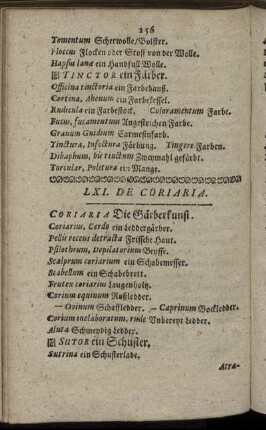 156
Tomentum Scherwolle/Bolster.
Floccus Flocken oder Stoff von der Wolle.
Hapsu lana ein Handfull Wolle.
TINCTOR ein Färber.
Officina tinctoria ein Farbehauß.
Cortina, Ahenum ein Farbekessel.
Rudicula ein Farbestock. Coloramentum Farbe.
Fucus, fucamentum Angestrichen Farbe.
Granum Gnidium Carmesinfarb.
Tinctura, Infectura Färbung. Tingere Farben.
Dibaphum, bis tinctum Zweymahl gefärbt.
Torcular, Politura ein Mange.
LXI. DE CORIARIA.
CORIARIA Die Gärberkunst.
Coriarius, Cerdo ein Leddergärber.
Pellis recens detracta Frische Haut.
Psilothrum, Depilatorium Beysse.
Scalprum coriarium ein Schabemesser.
Scabellum ein Schabebrett.
Frutex coriarius Laugenholtz.
Corium equinum Roßledder.
— Ovinum Schaffledder. — Caprinum Bockledder.
Corium inelaboratum, rude Unbereyt Ledder.
Aluta Schmeydig Ledder.
SUTOR ein Schuster.
Sutrina ein Schusterlade.